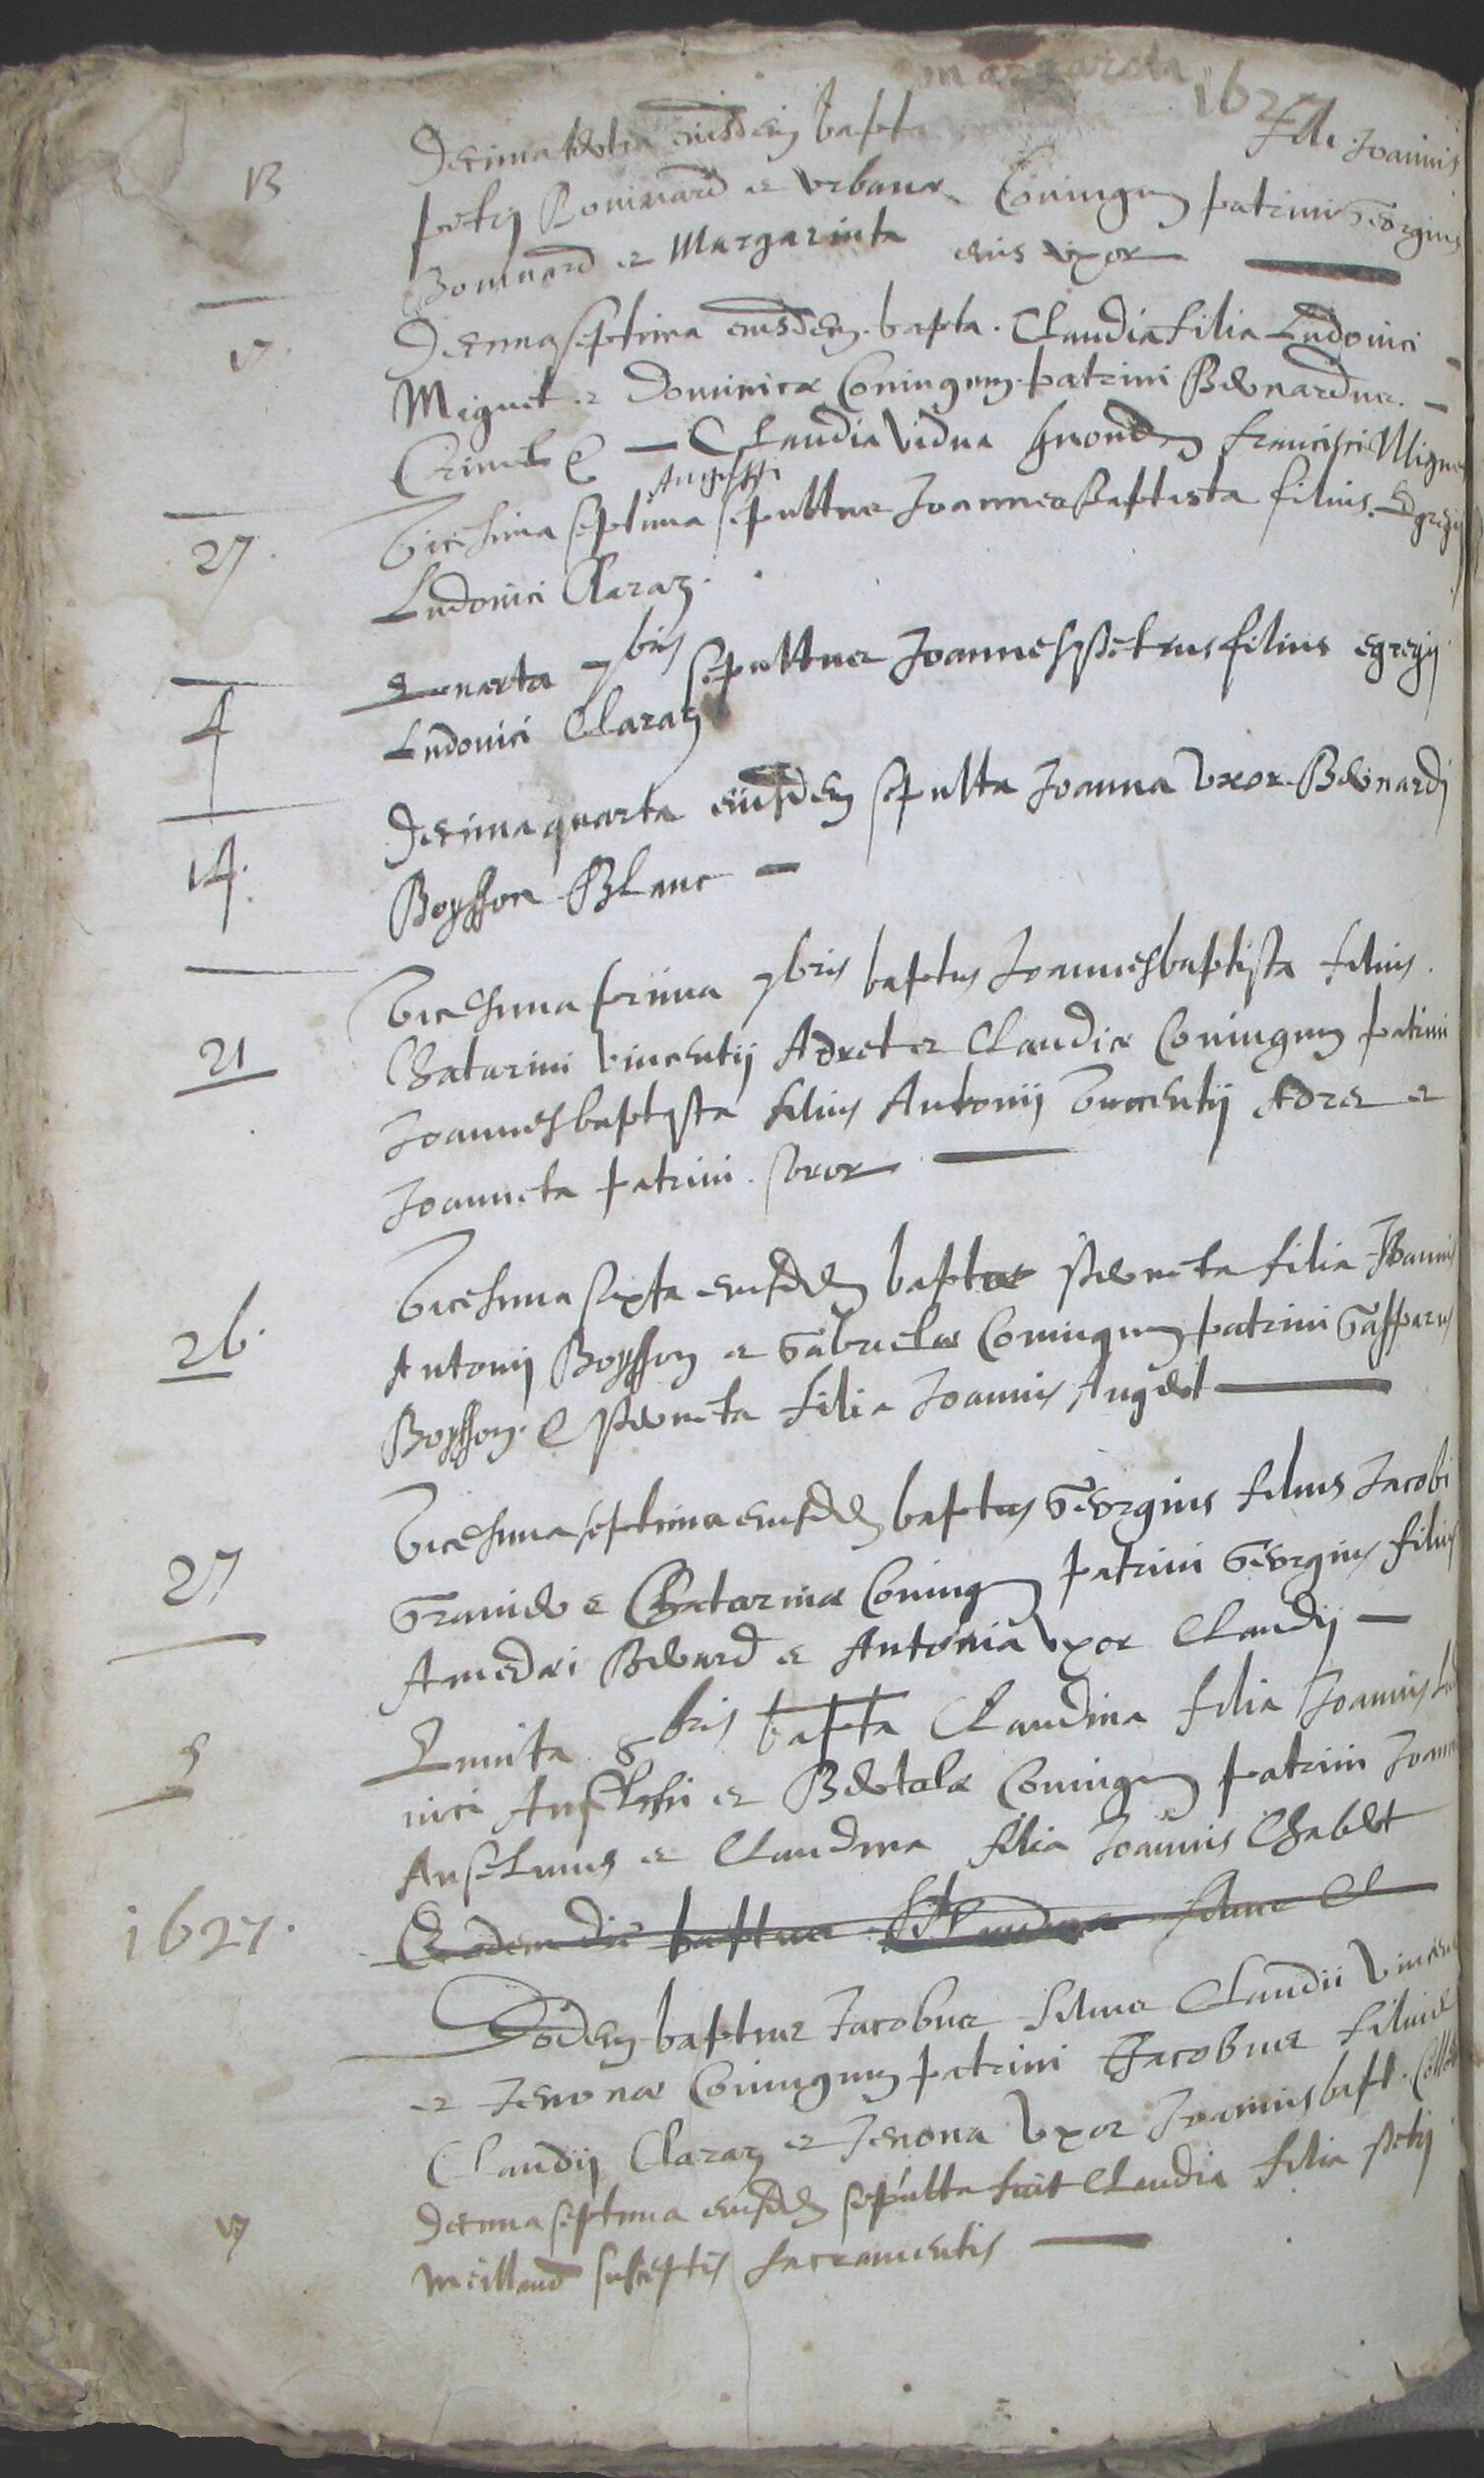 margareta 1627
13 Decimatertia eiusdem bapta filia Joannis
petri Bominard et urbanæ Coniugum patrini Georgius
Bominard et Margarinta eius uxor
17 Decimaseptima eiusdem bapta. Claudia filia Ludovici
Miguet et Dominicæ Coniugum patrini Bernardus
Crinel & Claudia vidua quondam francisci Migue
Augusti
27. Vicesima septima sepultus Joannes Baptista filius Egregii
Ludovici Claraz.
4 Quarta 7bris sepultus Joannes petrus filius egregii
Ludovici Claraz
14. Decimaquarta eiusdem sepulta Joanna Uxor Bernardi
Boysson Blanc
21 Vicesima prima 7bris baptus Joannesbaptista filius
Chatarini vincentij Adret et Claudiæ Coniugum patrini
Joannesbaptista filius Antonij Vincentij Adret et
Joanneta patrini soror
26. Vicesima sexta eiusdem bapta perneta filia Joannis
Antonij Boysson et Gabrielæ Coniugum patrini Gasparus
Boysson & perneta filia Joannis Anget
27 Vicesima septima eiusdem baptus Georgius filius Jacobi
Granier & Chatarinæ Coniugum patrini Georgius filius
Amedæi Berard et Antonia Uxor Claudij
5 Quinta 8bris bapta Claudina filia Joannis Ludo
nici Anselmi et Bertolæ Coniugum patrini Joannes
Anselmus et Claudina filia Joannis Chabert
1627. Eadem die baptus Claudina filius Cl
Eodem baptus Jacobus filius Claudii vincen
et Jenonæ Coniugum patrini Jacobus filius
Claudij Claraz et Jenona Uxor Joannis bapt.
17 Decima septima eiusdem sepulta fuit Claudia filia petrj
Meilland susceptis sacramentis